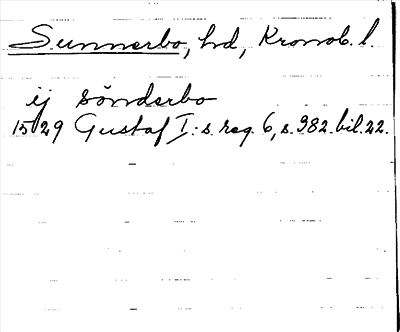 Sunnerbo, hd, Kronob. l.
ej sönderbo
1529 Gustaf I:s reg. 6, s. 382. bil. 22.